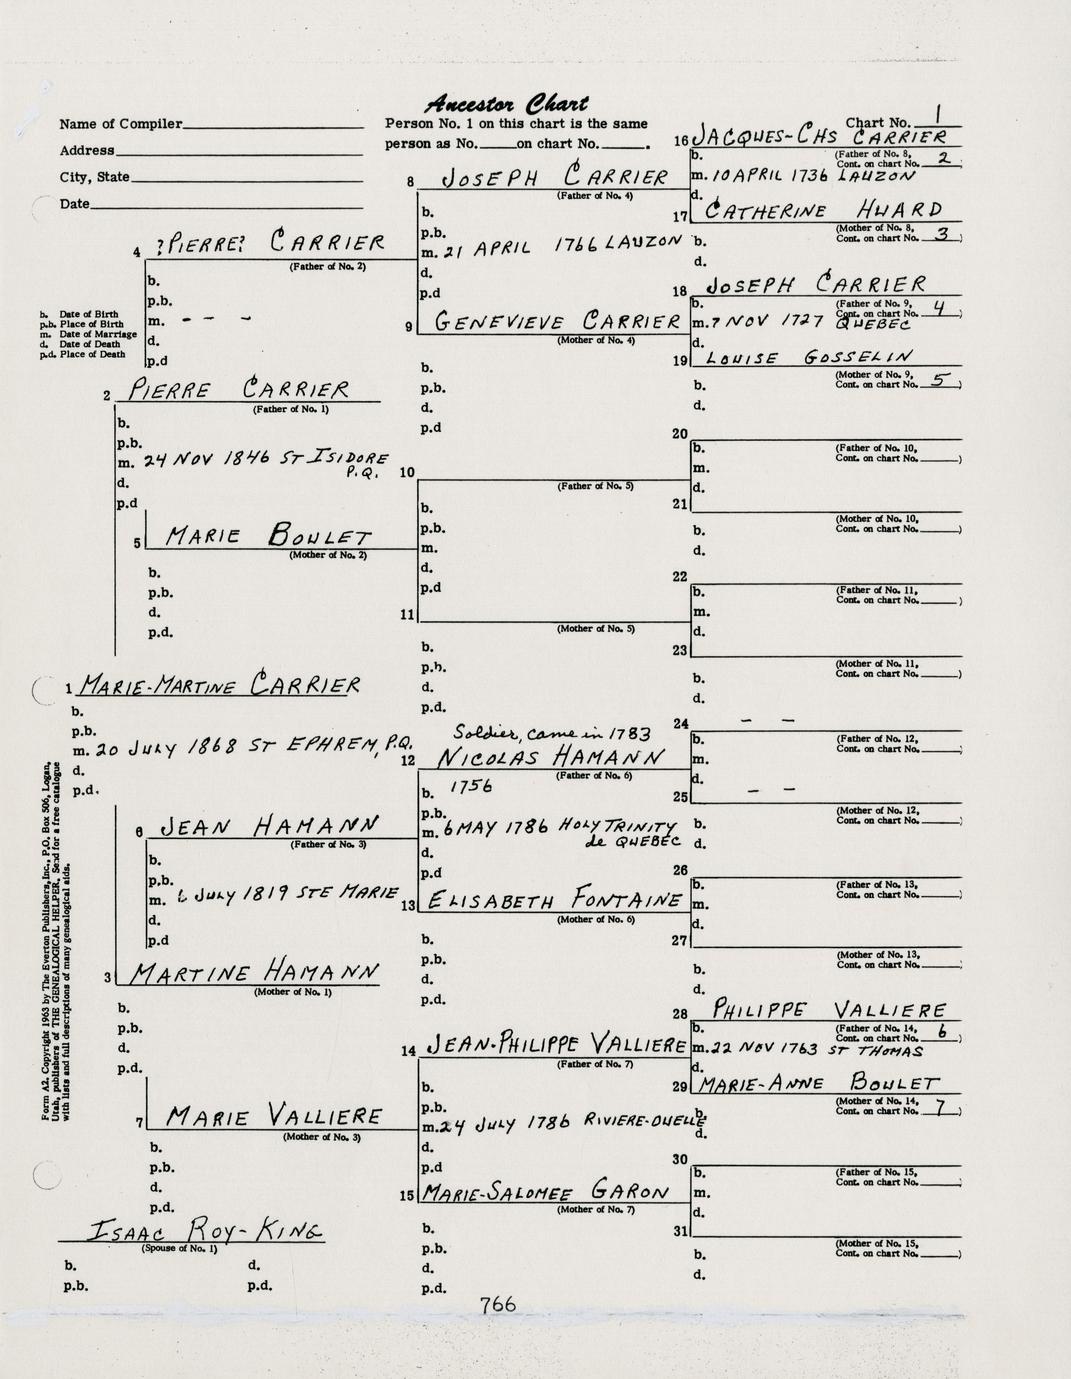 Ancestor Chart
Name of Compiler
Address
City, State
Date
Person No. 1 on this chart is the same
person as No. on chart No. .
Chart No. 1
16 JACQUES-CHS CARRIER
b. (Father of No. 8,
Cont. on chart No. 2
m. 10 APRIL 1736 LAUZON
d.
8 JOSEPH CARRIER
(Father of No. 4)
b.
p.b.
m. 21 APRIL 1766 LAUZON
d.
p.d
17 CATHERINE HUARD
(Mother of No. 8,
b. Cont. on chart No. 3 )
d.
4 ?PIERRE? CARRIER
(Father of No. 2)
b.
p.b.
m. - - -
d.
p.d
b. Date of Birth
p.b. Place of Birth
m. Date of Marriage
d. Date of Death
p.d. Place of Death
18 JOSEPH CARRIER
b. (Father of No. 9,
Cont. on chart No. 4
m. 7 NOV 1727 QUEBEC
d.
9 GENEVIEVE CARRIER
(Mother of No. 4)
b.
p.b.
d.
p.d
19 LOUISE GOSSELIN
(Mother of No. 9,
b. Cont. on chart No. 5 )
d.
2 PIERRE CARRIER
(Father of No. 1)
b.
p.b.
m. 24 NOV 1846 ST ISIDORE
P.Q.
d.
p.d
20
b. (Father of No. 10,
Cont. on chart No. )
m.
d.
10
(Father of No. 5)
b.
p.b.
m.
d.
p.d
21
(Mother of No. 10,
b. Cont. on chart No. )
d.
5 MARIE BOULET
(Mother of No. 2)
b.
p.b.
d.
p.d.
22
b. (Father of No. 11,
Cont. on chart No. )
m.
d.
11
(Mother of No. 5)
b.
p.b.
d.
p.d.
23
(Mother of No. 11,
b. Cont. on chart No. )
d.
1 MARIE-MARTINE CARRIER
b.
p.b.
m. 20 JULY 1868 ST EPHREM, P.Q.
d.
p.d.
24 - -
b. (Father of No. 12,
Cont. on chart No. )
m.
d.
Soldier, came in 1783
12 NICOLAS HAMANN
(Father of No. 6)
b. 1756
p.b.
m. 6 MAY 1786 HOLY TRINITY
de QUEBEC
d.
p.d
25 - -
(Mother of No. 12,
b. Cont. on chart No. )
d.
6 JEAN HAMANN
(Father of No. 3)
b.
p.b.
m. 6 JULY 1819 STE MARIE
d.
p.d
26
b. (Father of No. 13,
Cont. on chart No. )
m.
d.
13 ELISABETH FONTAINE
(Mother of No. 6)
b.
p.b.
d.
p.d.
27
(Mother of No. 13,
b. Cont. on chart No. )
d.
3 MARTINE HAMANN
(Mother of No. 1)
b.
p.b.
d.
p.d.
28 PHILIPPE VALLIERE
b. (Father of No. 14,
Cont. on chart No. 6 )
m. 22 NOV 1763 ST THOMAS
d.
14 JEAN-PHILIPPE VALLIERE
(Father of No. 7)
b.
p.b.
m. 24 JULY 1786 RIVIERE-OUELLE
d.
p.d
29 MARIE-ANNE BOULET
(Mother of No. 14,
b. Cont. on chart No. 7 )
d.
7 MARIE VALLIERE
(Mother of No. 3)
b.
p.b.
d.
p.d.
30
b. (Father of No. 15,
Cont. on chart No. )
m.
d.
15 MARIE-SALOMEE GARON
(Mother of No. 7)
b.
p.b.
d.
p.d.
31
(Mother of No. 15,
b. Cont. on chart No. )
d.
ISAAC ROY-KING
(Spouse of No. 1)
b. d.
p.b. p.d.
Form A2. Copyright 1963 by The Everton Publishers, Inc., P.O. Box 506, Logan,
Utah, publishers of THE GENEALOGICAL HELPER. Send for a free catalogue
with lists and full descriptions of many genealogical aids.
766